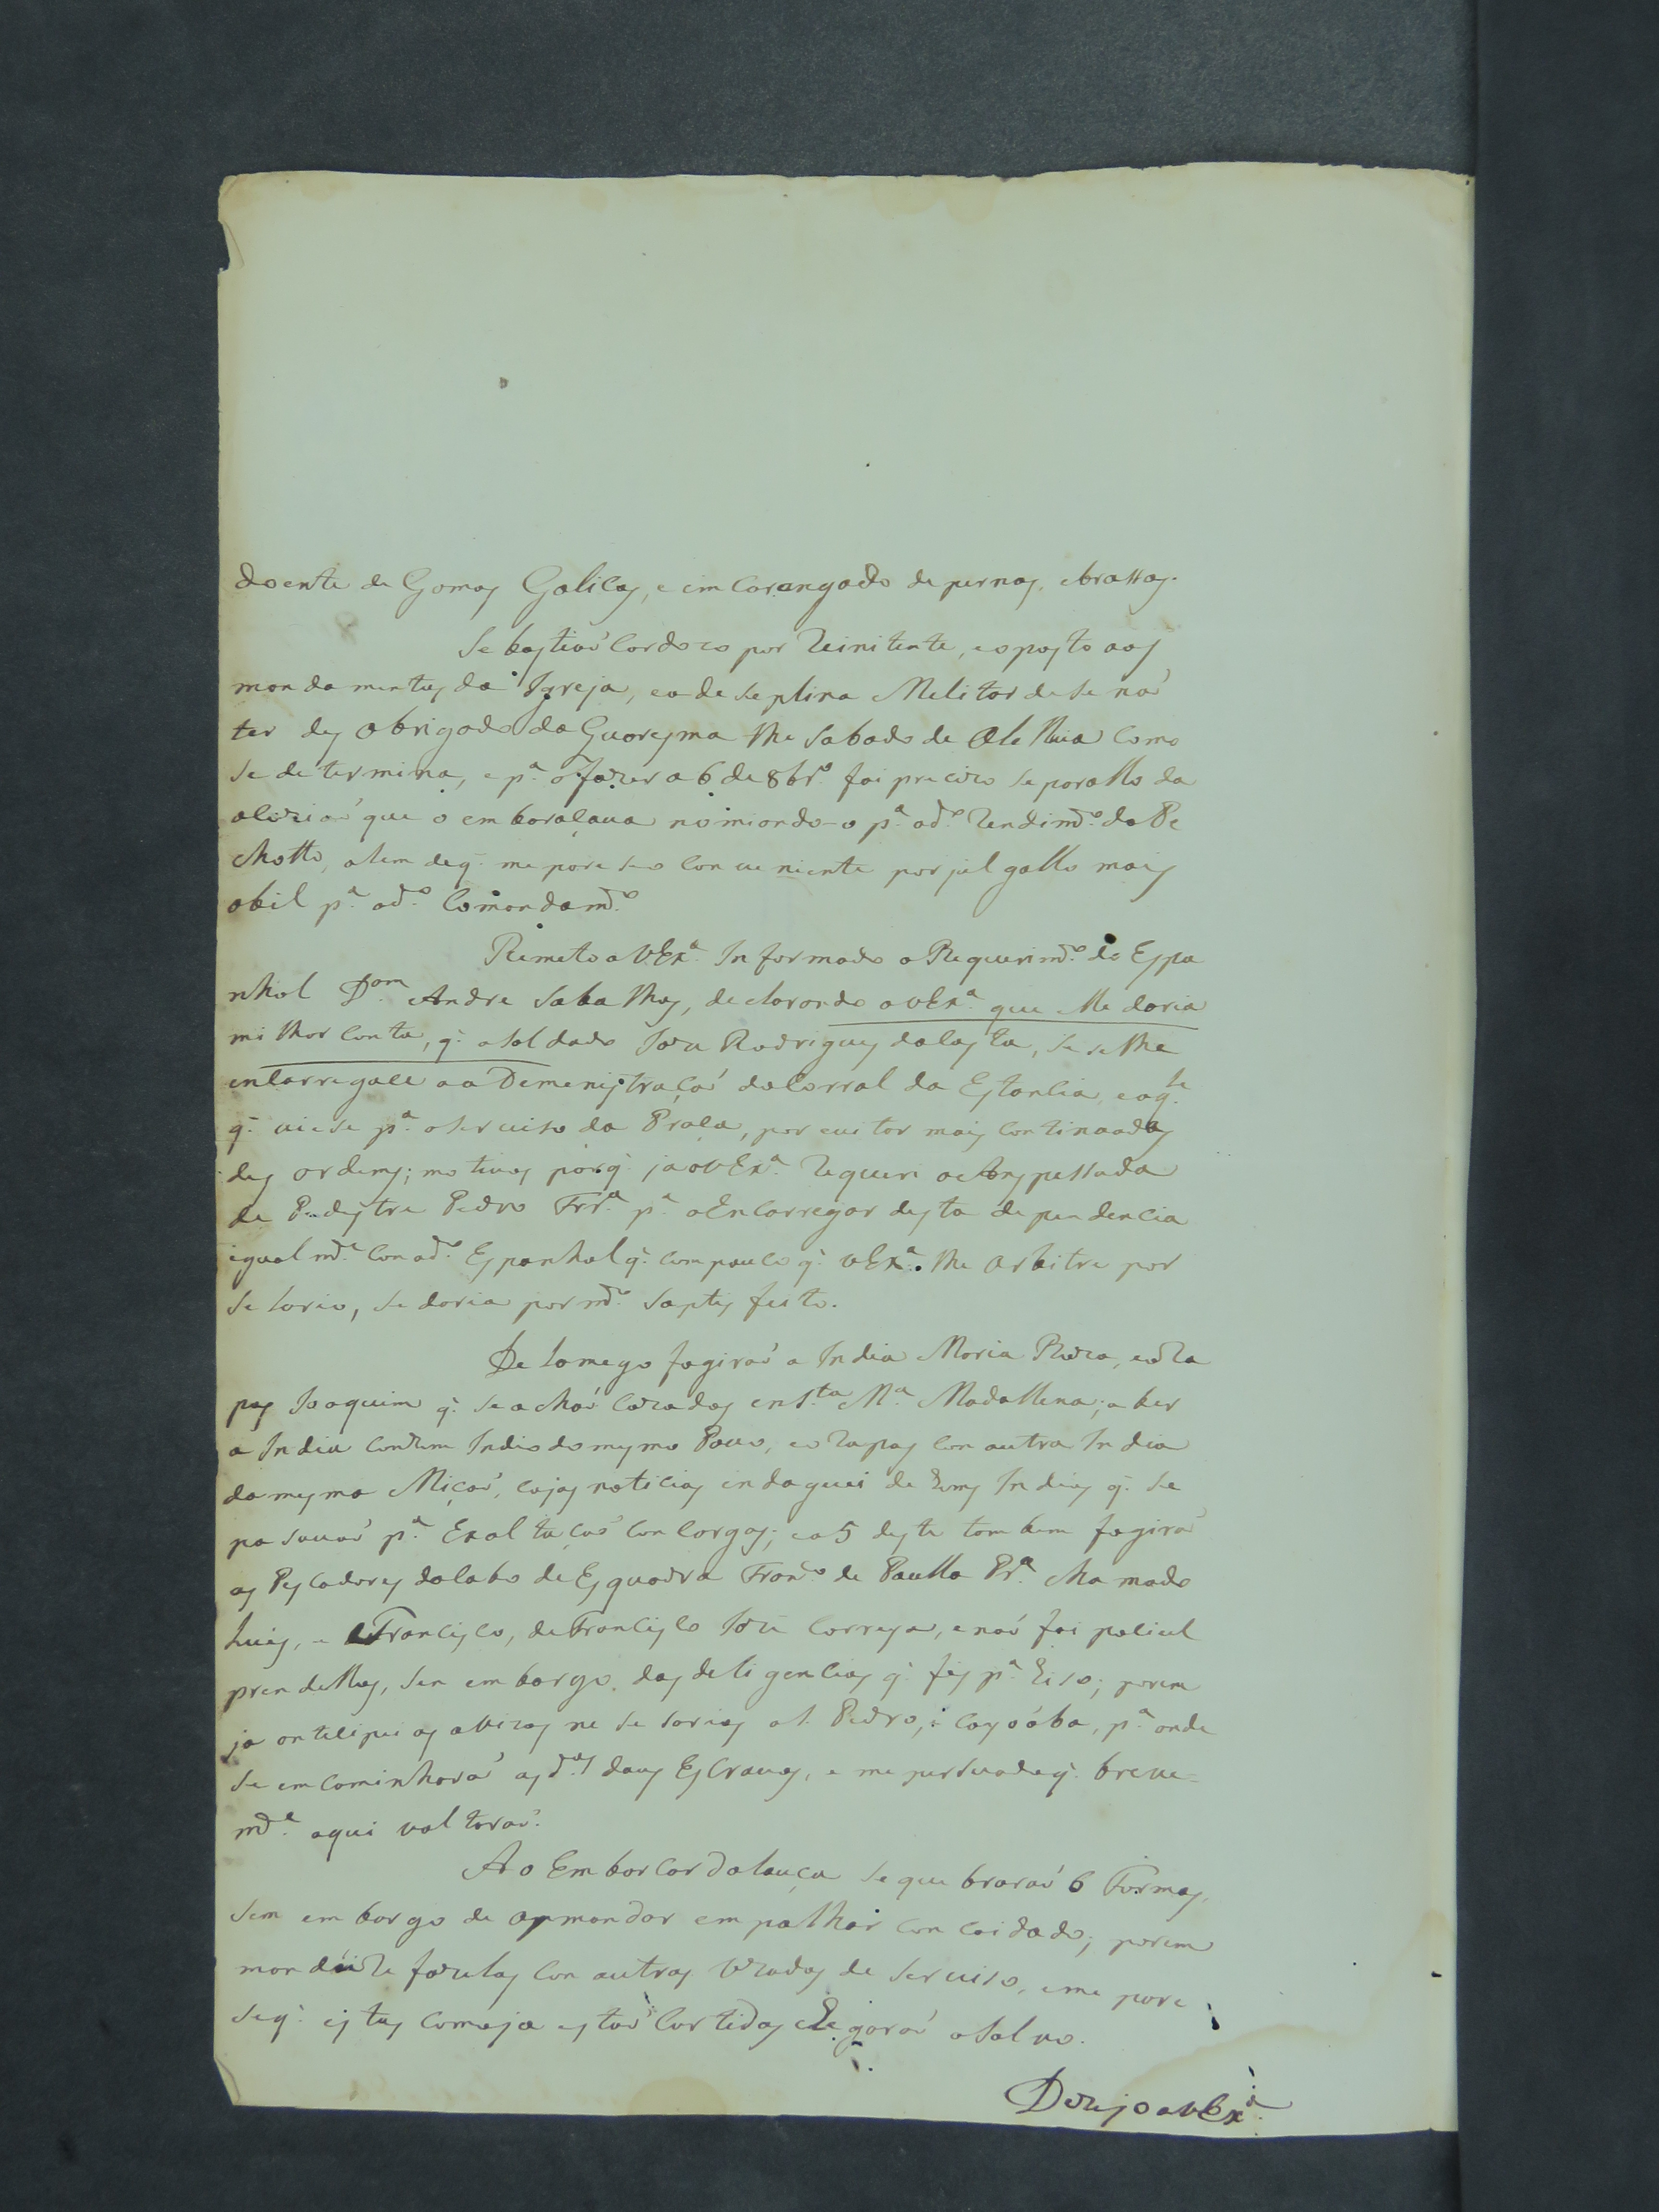 doente de Gomas Galicas, e emCarangado de pernas, ebrassas.
Sebastiaõ Cardozo por Reinitente, eoposto aos
mandamentos da Igreja, eade Seplina Melitar de Se naõ
ter des obrigado da Quaresma the Sabado de Alelluia Como
Se determina, e p.ª o fazer a 6 de 8br.º foi precizo Separallo da
que o embaraçava nomiando-o p.ª od.º Rendim.to do Pe
chotto, alem deq.' me pareseo Conveniente por julgallo mais
abil p.ª od.º Comandam.to
Remeto a VEx.ª Informado o Requerim.to do Espa
nhol Dom Andre Saba lhas, declarando a vEx.ª que lhe daria
milhor Conta, q.' oSoldado Joze Rodrigues daCosta, Se se lhe
enCarregace a aDemenistraçaõ doCorral da EstanCia, eaq.le
q.' viese p.ª oServiso da Praça, por evitar mais
des ordens; motivos porq.' ja avEx.ª Requeri oAnspessada
de Pedestre Pedro Frr.ª p.ª oEnCarregar desta dependencia
igualm.te Con od.º Espanhol q.' Com pouco q.' vEx.ª lhe Arbitre por
Selario, Se daria por m.to Saptisfeito.
De lamego fogiraõ a India Maria Roza, eoRa
pas Joaquim q.' Se achaõ Cazados en S.ta M.ª Madallena; aber
a India ConHum Indio domesmo Povo, eoRapas Con outra India
damesma Miçaõ, Cujas noticias indaguei de Huns Indios q.' Se
pasavaõ p.ª Exaltaçaõ Con Cargas; ea5 deste tombem fogiraõ
os PesCadores doCabo de Esquadra Fran.co de Paulla Pr.ª chamado
Luis, e FranCisCo, de FranCisCo Joze Correya, enaõ foi posivel
prendellos, Sen embargo das deligencias q.' fis p.ª Eiso; porem
ja antilipei os avizos neSeSarios a S. Pedro, e p.ª onde
Se emCominharaõ osd.os dous EsCravos, e me persuadeq.' breve=
m.te aqui voltaraõ.
Ao EmbarCar daLouça Se quebraraõ 6 Formas,
Sem embargo de asmandar empalhar Con Coidado; porem
mandeiRe fazelas Con outras Uzadas de Serviso, eme pare
Seq.' estas Comoja estaõ Curtidas chegaraõ aSalvo.
Dezejo a vEx.ª